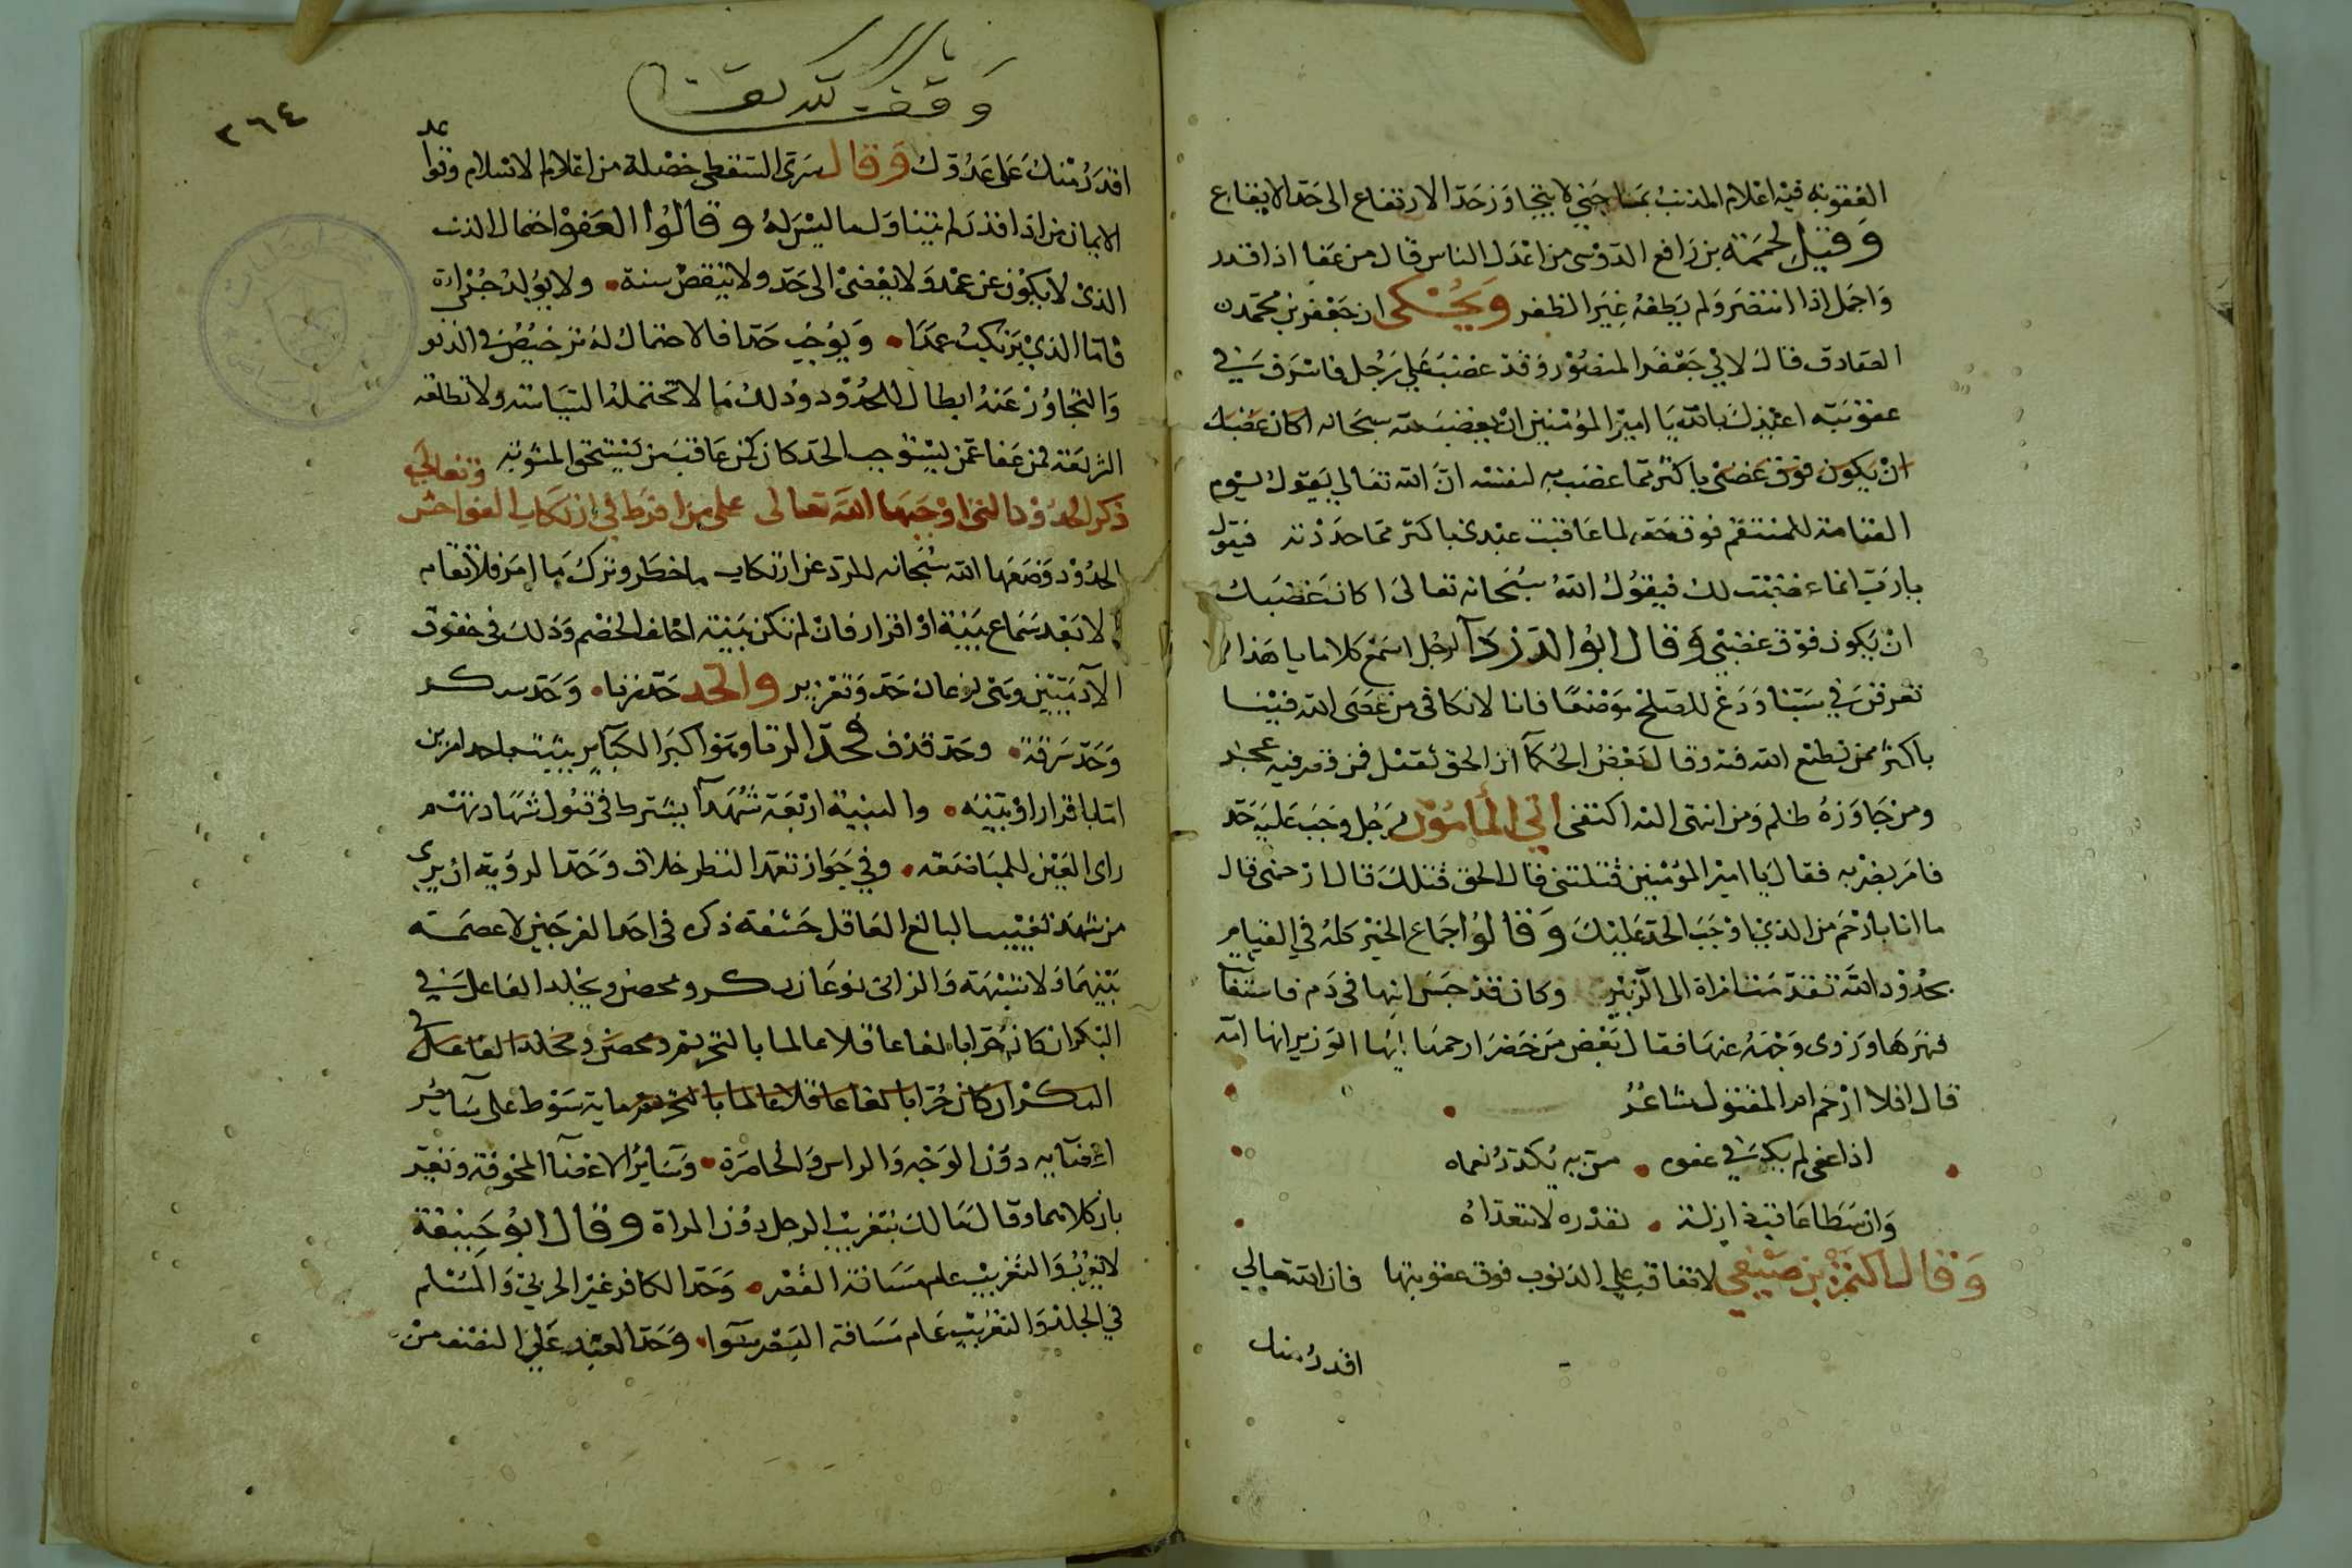 العقوبة فيه اعلام المذنب بما جني لا يتجاوز حد الارتفاع الى حد الايقاع
وقيل لحممة بن رافع الدوسى من اعدل الناس قال من عفا اذا قدر
واجمل اذا انتصر ولم يطغه غير الظفر ويحكى ان جعفر بن محمد
الصادق قال لابي جعفر المنصور وقد غضب على رجل فاسرف في
عقوبته اعيذك بالله يا امير المؤمنين ان يغضب لله سبحانه اكان غضبك
ان يكون فوق غضبى باكثر مما غضب به لنفسه ان الله تعالي يقول يوم
القيامة للمنتقم فوق حقه لما عاقبت عبدى باكثر مما حددته فيقول
يا رب انما غضبت لك فيقول الله سبحانه تعالى اكان غضبك
ان يكون فوق غضبي وقال ابو الدردآ لرجل اسمع كلاما يا هذا لا
تغرقن في سبنا ودع للصلح موضعا فانا لا نكافى من عصى الله فينا
باكثر ممن نطيع الله فيه وقال بعض الحكمآ ان الحق ثقيل فمن قصر فيه عجز
ومن جاوزه ظلم ومن انتهى اليه اكتفى اتي المأمون برجل وجب عليه حد
فامر بضربه فقال يا امير المؤمنين قتلتنى قال الحق قتلك قال ارحمنى قال
ما انا بارحم من الذي اوجب الحد عليك وقالوا جماع الخير كله في القيام
بحدود الله تقدمت امراة الى الزبير وكان قد حبس ابنها في دم فاستغا
فنهرها وزوى وجهه عنها فقال بعض من حضر ارحمها ايها الوزير انها امه
قال افلا ارحم ام المقتول شاعر
اذا عفى لم يكن في عفوه من به يكدر نعماه
وان سطا عاقب ذا زلة بقدره لا تتعداه
وقال اكثم بن صيفي لا تعاقب على الذنوب فوق عقوبتها فان الله تعالي
اقدر منك
وقف
٢٦٤
اقدر منك على عدوك وقال سرى السقطى خصلة من اعلام الاسلام وقوا عد
الايمان من اذا قدر لم يتناول ما ليس له وقالوا العفو احتمال الذنب
الذي لا يكون عن عمد ولا يفضى الى حد ولا ينقض سنة ولا يولد جرأة
فاما الذي يرتكب عمدا ويوجب حدا فالاحتمال له ترخيص في الذنو
والتجاوز عنه ابطال للحدود وذلك ما لا تحتمله السياسة ولا تطلقه
الشريعة فمن عفا عمن يستوجب الحد كان كمن عاقب من يستحق المثوبة
ذكر الحدود التي اوجبها الله تعالى على من افرط في ارتكاب الفواحش
الحدود وضعها الله سبحانه للردع عن ارتكاب ما حظر وترك ما امر فلا تقام
الا بعد سماع بينة او اقرار فان لم تكن بينة احلف الخصم وذلك في حقوق
الآدميين وهى نوعان حد وتعزير والحد حد زنا وحد سكر
وحد سرقة وحد قذف فحد الزنا وهو اكبر الكبآير يثبت باحد امرين
اما باقرار او بينه والبينة اربعة شهدآ يشترط في قبول شهادتهم
راى العين للمباضعة وفي جواز تعمد النظر خلاف وحد الرؤية ان يرى
من شهد تغييب البالغ العاقل حشفة ذكره في احد الفرجين لا عصمة
بينهما ولا شبهة والزانى نوعان بكر ومحصن ويجلد الفاعل في
البكر ان كان حرا بالغا عاقلا عالما بالتحريم ومحصن ويجلد الفاعل في
البكر ان كان حرا بالغا عاقلا عالما بالتحريم ماية سوط على سآير
اعضآيه دون الوجه والراس والخاصرة وساير الاعضآ المخوفة وتغير
بان كلاهما وقال مالك بتغريب الرجل دون المراة وقال ابو حنيفة
لا تغريب والتغريب عام مسافة القصر وحد الكافر غير الحربي والمسلم
في الجلد والتغريب عام مسافة القصر سوا وحد العبد على النصف من